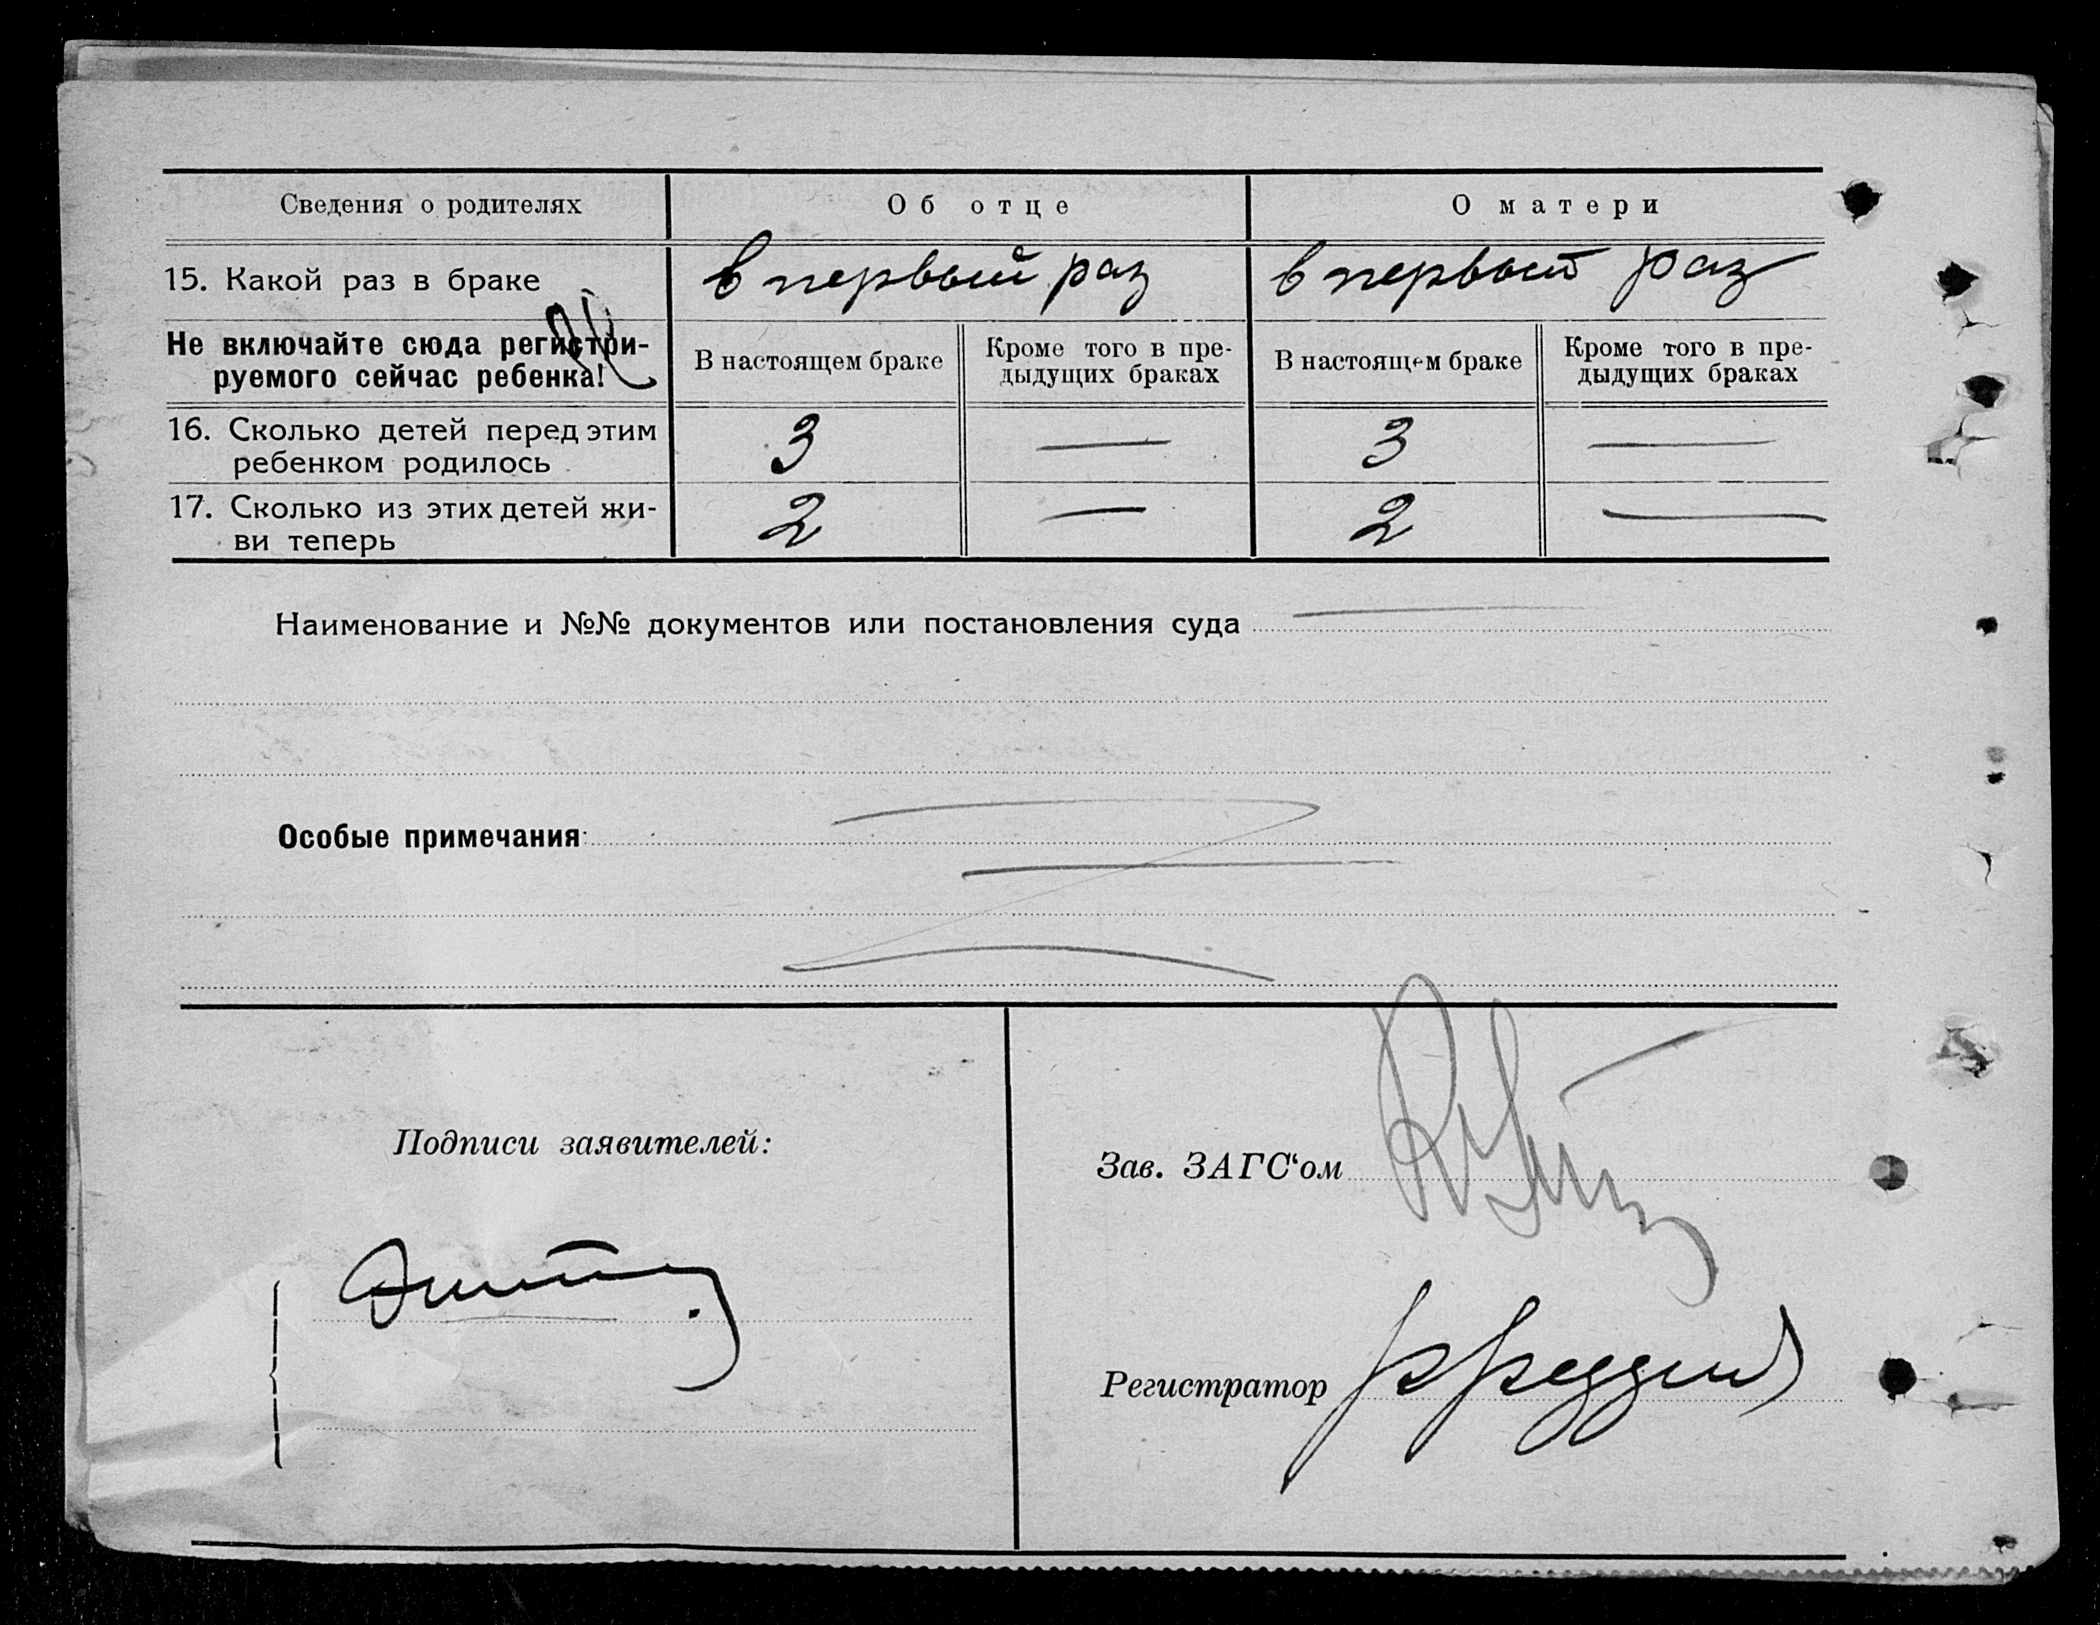 Сведения о родителях Об отце О матери
15. Какой раз в браке в первый раз в первый раз
Не включайте сюда регистри-
руемого сейчас ребенка!
В настоящем браке Кроме того в пре-
дыдущих браках В настоящем браке Кроме того в пре-
дыдущих браках
16. Сколько детей перед этим
ребенком родилось 3 — 3 —
17. Сколько из этих детей жи-
ви теперь 2 — 2 —
Наименование и №№ документов или постановления суда —
Особые примечания:
Подписи заявителей:
Зав. ЗАГС‘ом
Регистратор